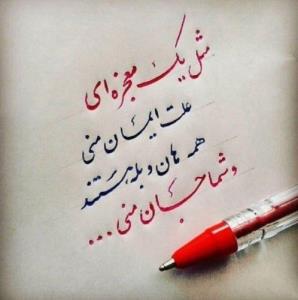 مثل یک معجزه ای
علت ایمان منی
همه هان و بله هستند
و شما جان منی ...